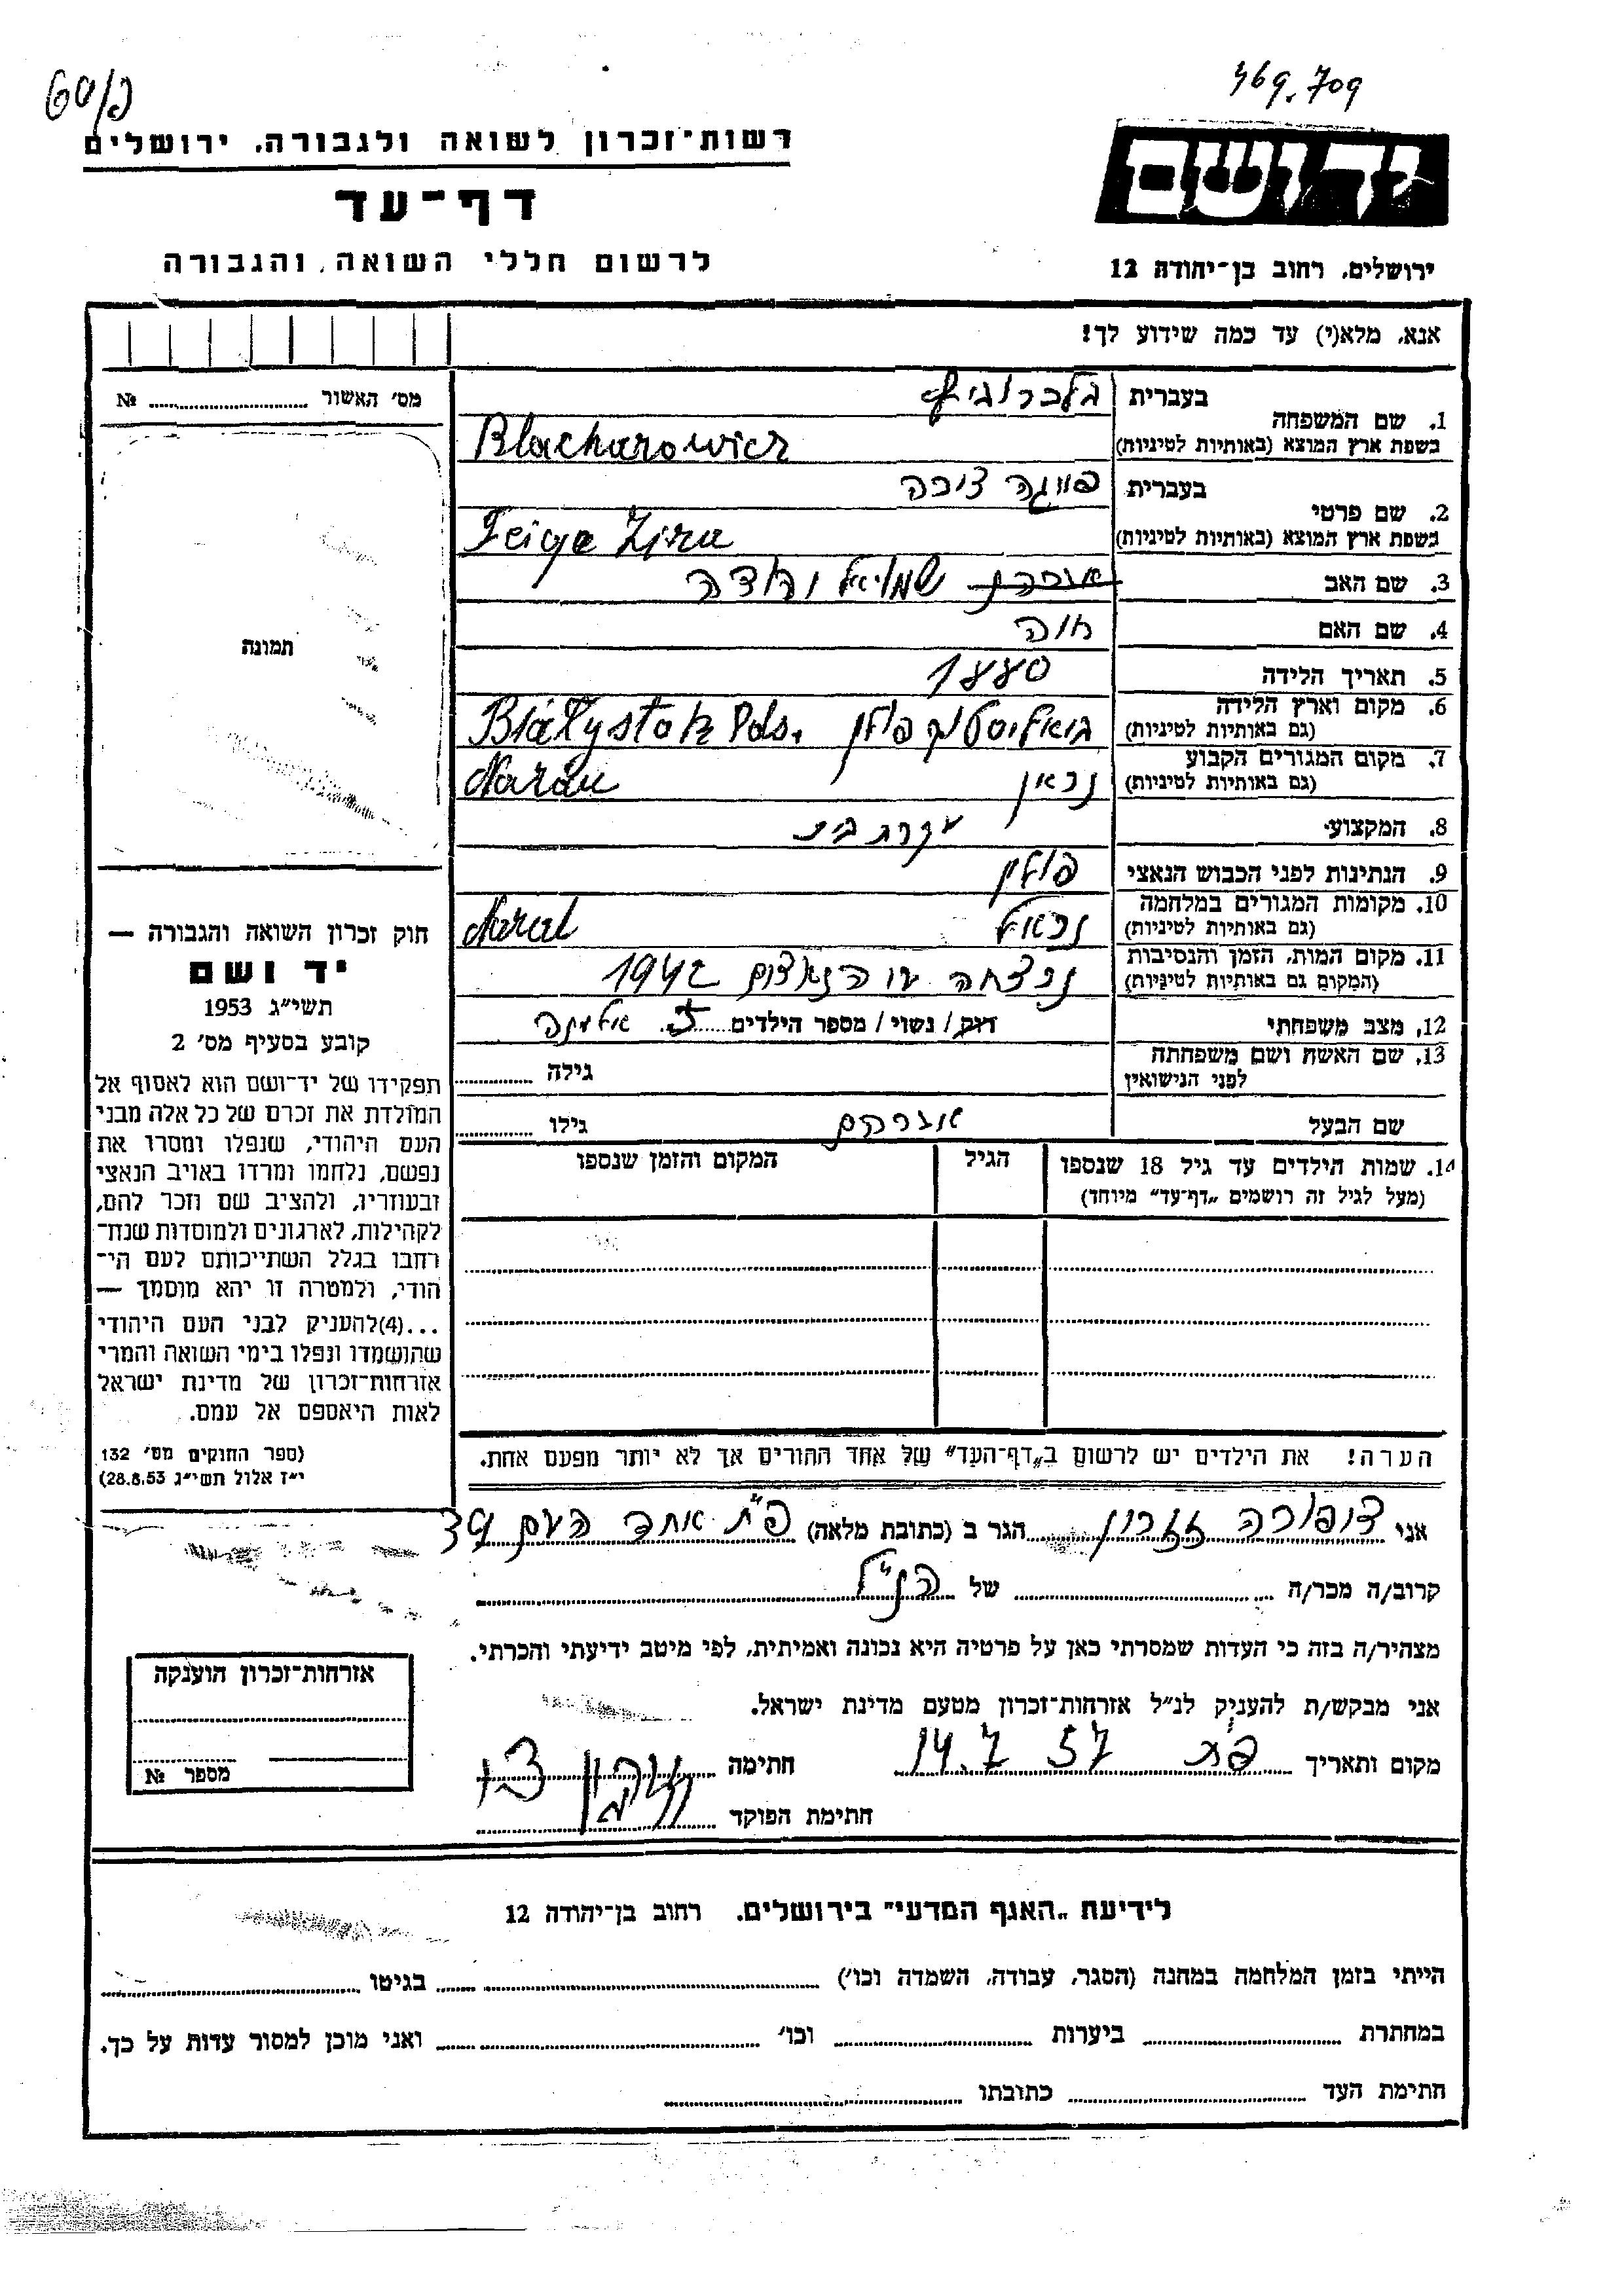 469.709
60/פ
רשות־זכרון לשואה ולגבורה, ירושלים
דף־עד
לרשום חללי השואה והגבורה
יד ושם
ירושלים, רחוב בן־יהודה 12
אנא, מלא(י) עד כמה שידוע לך!
מס׳ האשור № 
1. שם המשפחה בעברית
בשפת ארץ המוצא (באותיות לטיניות) Blacharowicz
2. שם פרטי בעברית פייגה צירה
בשפת ארץ המוצא (באותיות לטיניות) Feiga Zira
3. שם האב שמואל יהודה
4. שם האם חוה
5. תאריך הלידה 1880
6. מקום וארץ הלידה
(גם באותיות לטיניות) ביאליסטוק פולין Białystok Pols.
7. מקום המגורים הקבוע
(גם באותיות לטיניות)
8. המקצוע עקרת בית
9. הנתינות לפני הכבוש הנאצי פולין
10. מקומות המגורים במלחמה
(גם באותיות לטיניות)
11. מקום המות, הזמן והנסיבות
(המקום גם באותיות לטיניות) נרצחה ע״י הנאצים 1942
12. מצב משפחתי רווק / נשוי / מספר הילדים 5. אלמנה
13. שם האשה ושם משפחתה
לפני הנישואין
גילה
שם הבעל אברהם גילו
14. שמות הילדים עד גיל 18 שנספו
(מעל לגיל זה רושמים „דף־עד״ מיוחד)
הגיל
המקום והזמן שנספו
הערה! את הילדים יש לרשום ב„דף־העד״ של אחד ההורים אך לא יותר מפעם אחת.
תמונה
חוק זכרון השואה והגבורה —
יד ושם
תשי״ג 1953
קובע בסעיף מס׳ 2
תפקידו של יד־ושם הוא לאסוף אל
המולדת את זכרם של כל אלה מבני
העם היהודי, שנפלו ומסרו את
נפשם, נלחמו ומרדו באויב הנאצי
ובעוזריו, ולהציב שם וזכר להם,
לקהילות, לארגונים ולמוסדות שנח־
רבו בגלל השתייכותם לעם הי־
הודי, ולמטרה זו יהא מוסמך —
...(4)להעניק לבני העם היהודי
שהושמדו ונפלו בימי השואה והמרי
אזרחות־זכרון של מדינת ישראל
לאות היאספם אל עמם.
(ספר החוקים מס׳ 132
י״ז אלול תשי״ג 28.8.53)
אני צפורה הגר ב (כתובת מלאה) פ״ת אחד העם 34
קרוב/ה מכר/ה של הנ״ל
מצהיר/ה בזה כי העדות שמסרתי כאן על פרטיה היא נכונה ואמיתית, לפי מיטב ידיעתי והכרתי.
אני מבקש/ת להעניק לנ״ל אזרחות־זכרון מטעם מדינת ישראל.
מקום ותאריך פ״ת 14.7 57 חתימה
חתימת הפוקד
אזרחות־זכרון הוענקה
מספר №
לידיעת „האגף המדעי״ בירושלים, רחוב בן־יהודה 12
הייתי בזמן המלחמה במחנה (הסגר, עבודה, השמדה וכו׳) בגיטו
במחתרת ביערות וכו׳ ואני מוכן למסור עדות על כך.
חתימת העד כתובתו